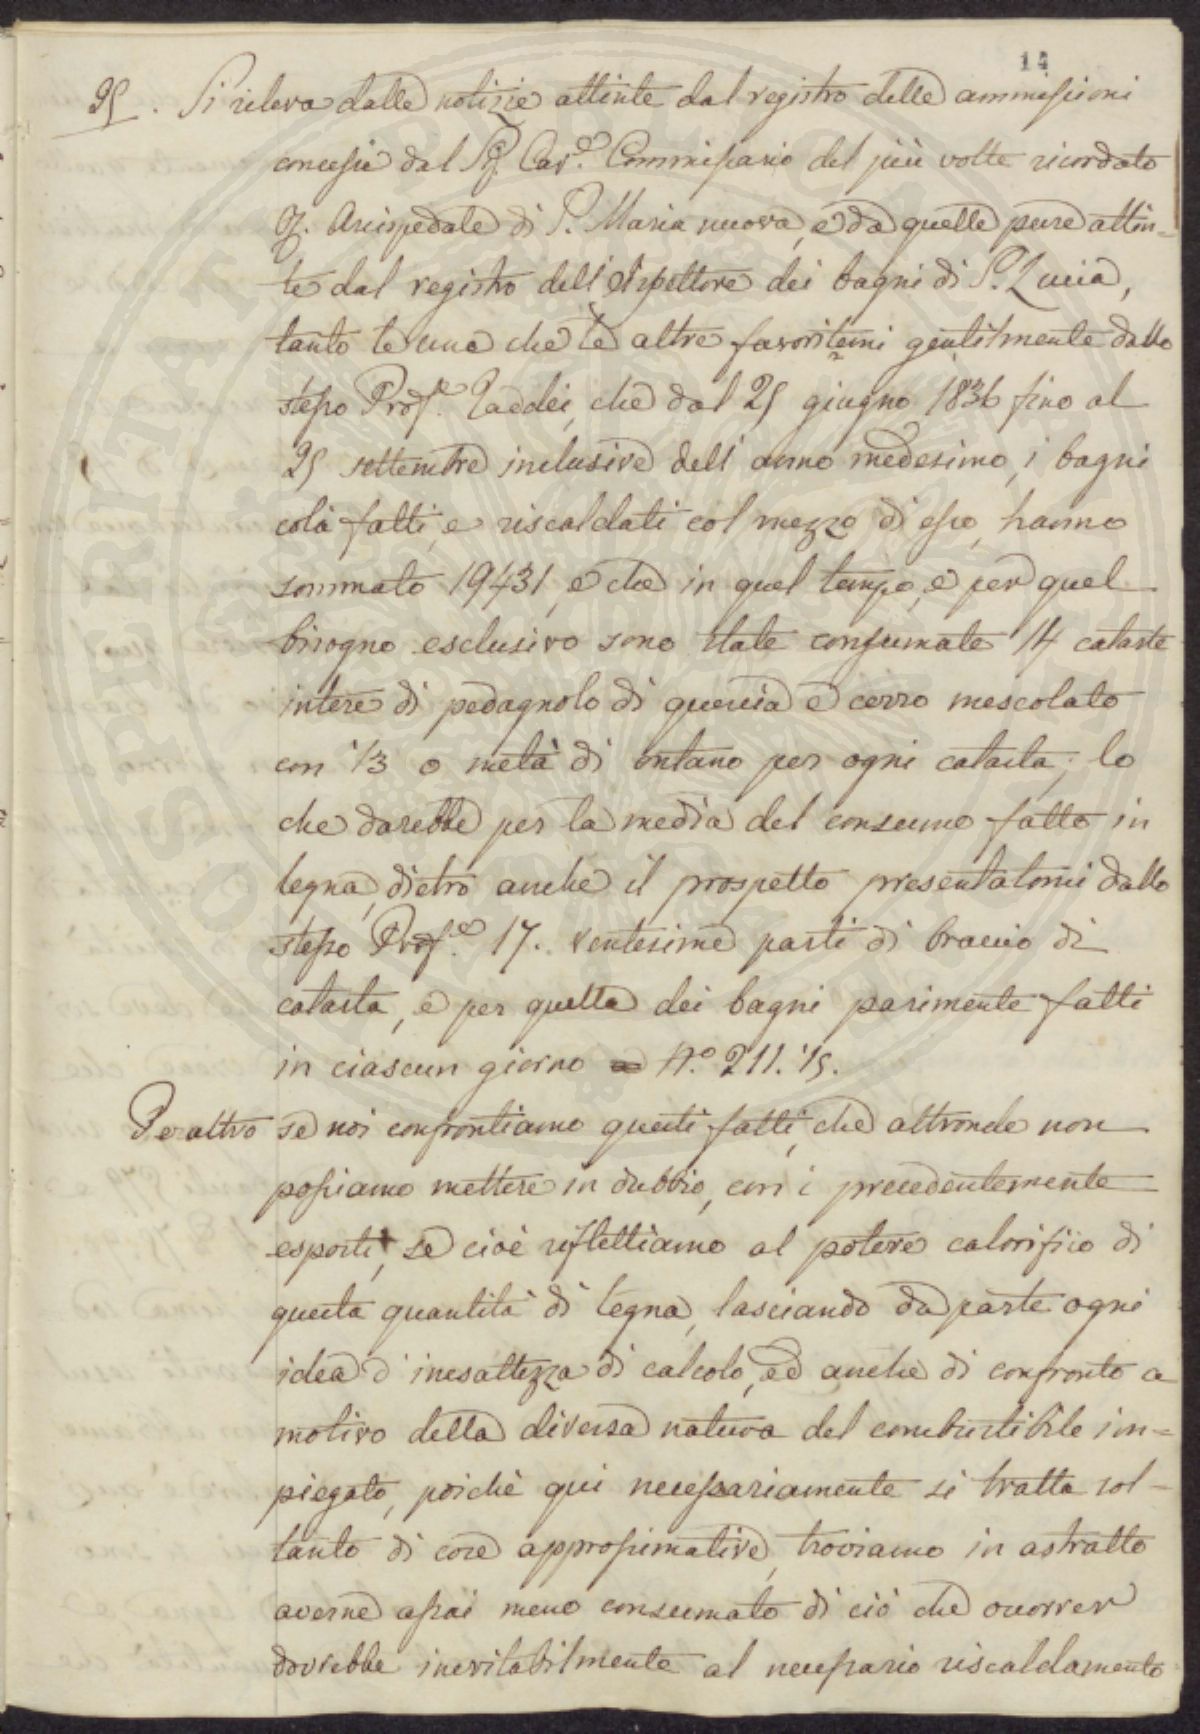 14
25. Si rileva dalle notizie attinte dal registro delle ammissioni
concesse dal Sig. Cav.e Commissario del più volte ricordato
Arcispedale di S. Maria nuova, e da quelle pure attin=
te dal registro dell'Ispettore dei bagni di S. Lucia,
tanto le une che le altre favoritemi gentilmente dallo
stesso Prof.e Taddei, che dal 25 giugno 1836 fino al
25 settembre inclusive dell'anno medesimo, i bagni
colà fatti, e riscaldati col mezzo di esse, hanno
sommato 19431, e che in quel tempo, e per quel
bisogno esclusivo sono state consumate 14 cataste
intere di pedagnolo di quercia e cerro mescolato
con 1/3 o metà di ontano per ogni catasta; lo
che darebbe per la media del consumo fatto in
legna, dietro anche il prospetto presentatomi dallo
stesso Prof.e 17. ventesime parti di braccio di
catasta, e per quella dei bagni parimente fatti
in ciascun giorno N.o 211.15.
Peraltro se noi confrontiamo questi fatti, che altronde non
possiamo mettere in dubbio, con i precedentemente
esposti, se cioè riflettiamo al potere calorifico di
questa quantità di legna, lasciando da parte ogni
idea d'inesattezza di calcolo, ed anche di confronto a
motivo della diversa natura del combustibile im=
piegato, poichè qui necessariamente si tratta sol=
tanto di cose approssimative, troviamo in astratto
averne assai meno consumato di ciò che occorrer
dovrebbe inevitabilmente al necessario riscaldamento
OSPERITATI PUBLICAE